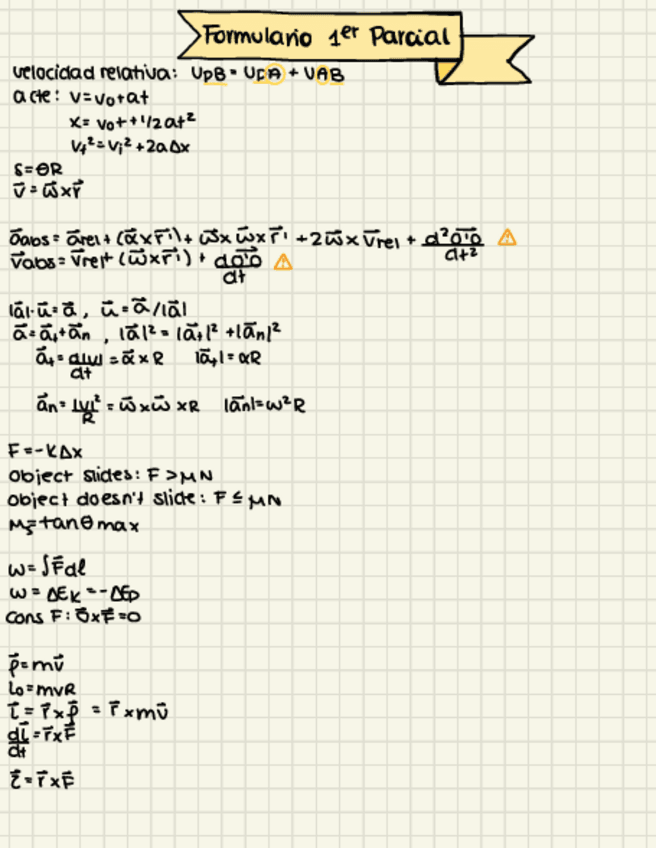 Formulario 1er Parcial
velocidad relativa: VPB = VPA + VAB
acte: v=v₀+at
x= v₀t+1/2at²
vf²=vi²+2aΔx
s=θR
v⃗=ω⃗×r⃗
a⃗abs= a⃗rel+(α⃗×r⃗')+ω⃗×ω⃗×r⃗'+2ω⃗×v⃗rel + d²O⃗'O/dt² ⚠
v⃗abs= v⃗rel+(ω⃗×r⃗') + dO⃗'O/dt ⚠
|a⃗|·u⃗=a⃗, u⃗=a⃗/|a⃗|
a⃗=a⃗t+a⃗n, |a⃗|²=|a⃗t|²+|a⃗n|²
a⃗t= d|v|/dt = α⃗×R |a⃗t|=αR
a⃗n= |v|²/R = ω⃗×ω⃗×R |a⃗n|=ω²R
F=-KΔx
Object slides: F > μN
Object doesn't slide: F ≤ μN
μs=tanθmax
ω=∫F⃗dl
ω= ΔEk=-ΔEp
Cons F: ∇⃗×F⃗=0
p⃗=mv⃗
Lo=mvR
L⃗= r⃗×p⃗ = r⃗×mv⃗
dL⃗/dt=r⃗×F⃗
τ⃗=r⃗×F⃗